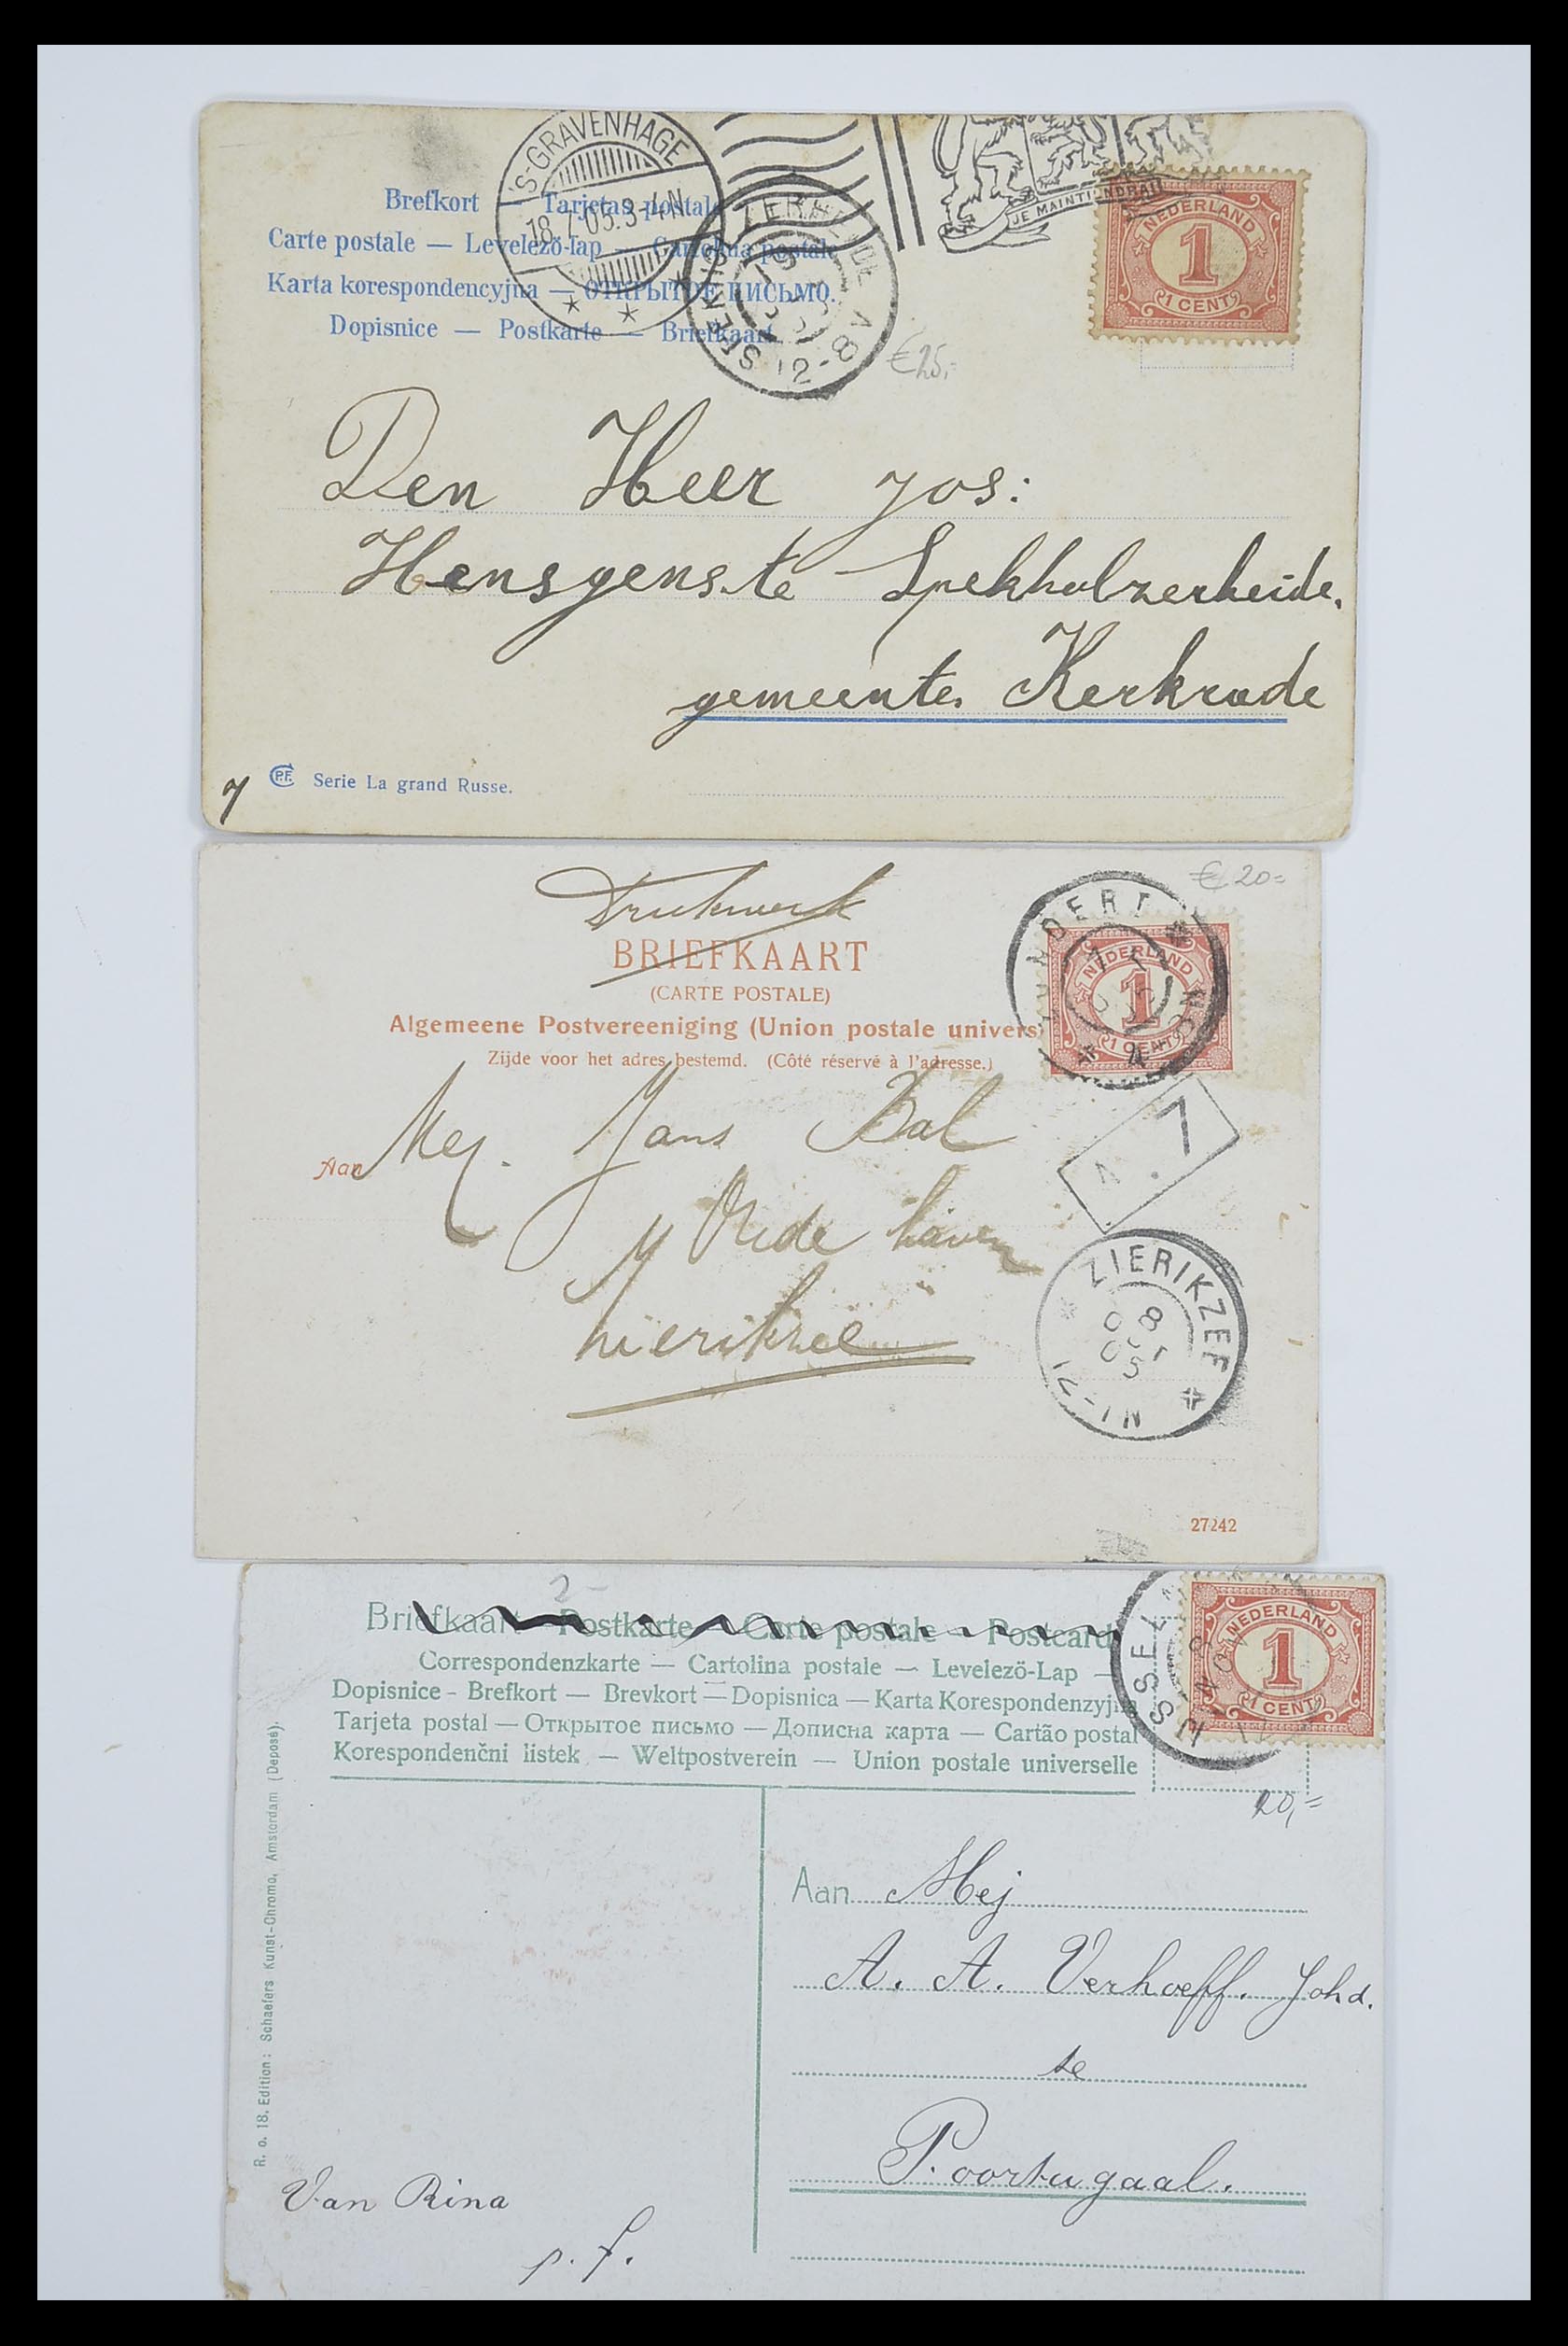 'S-GRAVENHAGE
18.7.05.3-4N
JE MAINTIENDRAI
NEDERLAND
1
1 CENT
Brefkort — Tarjetas postale
Carte postale — Levelezö-lap — Cartolina postale
Karta korespondencyjna — ОТКРЫТОЕ ПИСЬМО.
Dopisnice — Postkarte — Briefkaart
€25,-
Den Heer Jos:
Hensgens te Spekholzerheide.
gemeente Kerkrade
7
P.F. Serie La grand Russe.
€ 20=
Drukwerk
BRIEFKAART
(CARTE POSTALE)
Algemeene Postvereeniging (Union postale univers
Zijde voor het adres bestemd. (Côté réservé à l'adresse.)
NEDERLAND
1
1 CENT
Aan Mej. Jans Bal
Oude haven
Zierikzee
7
ZIERIKZEE
8
OCT
05
27242
2-
Briefkaart — Postkarte — Carte postale — Postcard
Correspondenzkarte — Cartolina postale — Levelezö-Lap —
Dopisnice - Brefkort — Brevkort — Dopisnica — Karta Korespondenzyjna
Tarjeta postal — Открытое письмо — Дописна карта — Cartão postal
Korespondenčni listek — Weltpostverein — Union postale universelle
NEDERLAND
1
1 CENT
20,=
R. o. 18. Edition: Schaefers Kunst-Chromo, Amsterdam (Deposé).
Aan Mej
A. A. Verhoeff. Johd.
te
Poortugaal.
Van Rina
p. f.